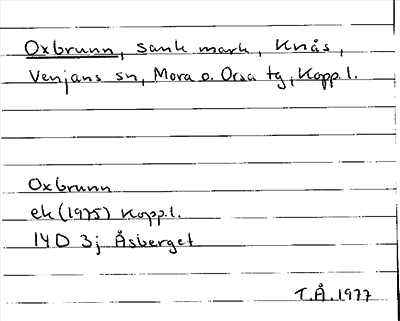 Oxbrunn, sank mark, Knås,
Venjans sn, Mora o. Orsa tg, Kopp. l.
Oxbrunn
ek (1975) Kopp. l.
14D 3j Åsberget
T.Å. 1977